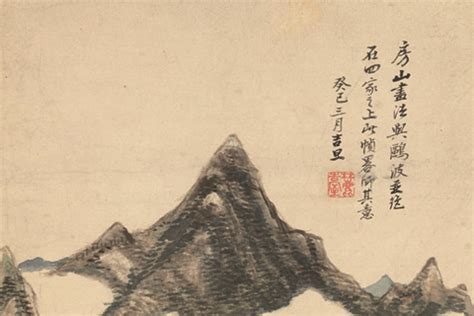 房山畫法與鷗波並從
石四家之上此幀畧師其意
癸巳三月吉旦